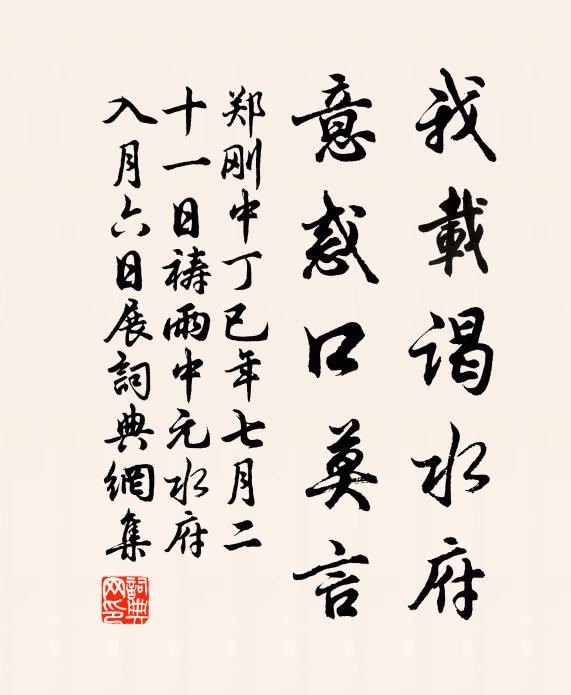 我載谒水府
意惑口莫言
郑刚中丁巳年七月二
十一日禱雨中元水府
入月六日展詞典網集
詞典网印